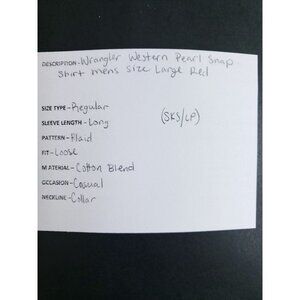 DESCRIPTION - Wrangler Western Pearl Snap
Shirt Mens Size Large Red
SIZE TYPE - Regular
(SKS/LP)
SLEEVE LENGTH - Long
PATTERN - Plaid
FIT - Loose
MATERIAL - Cotton Blend
OCCASION - Casual
NECKLINE - Collar